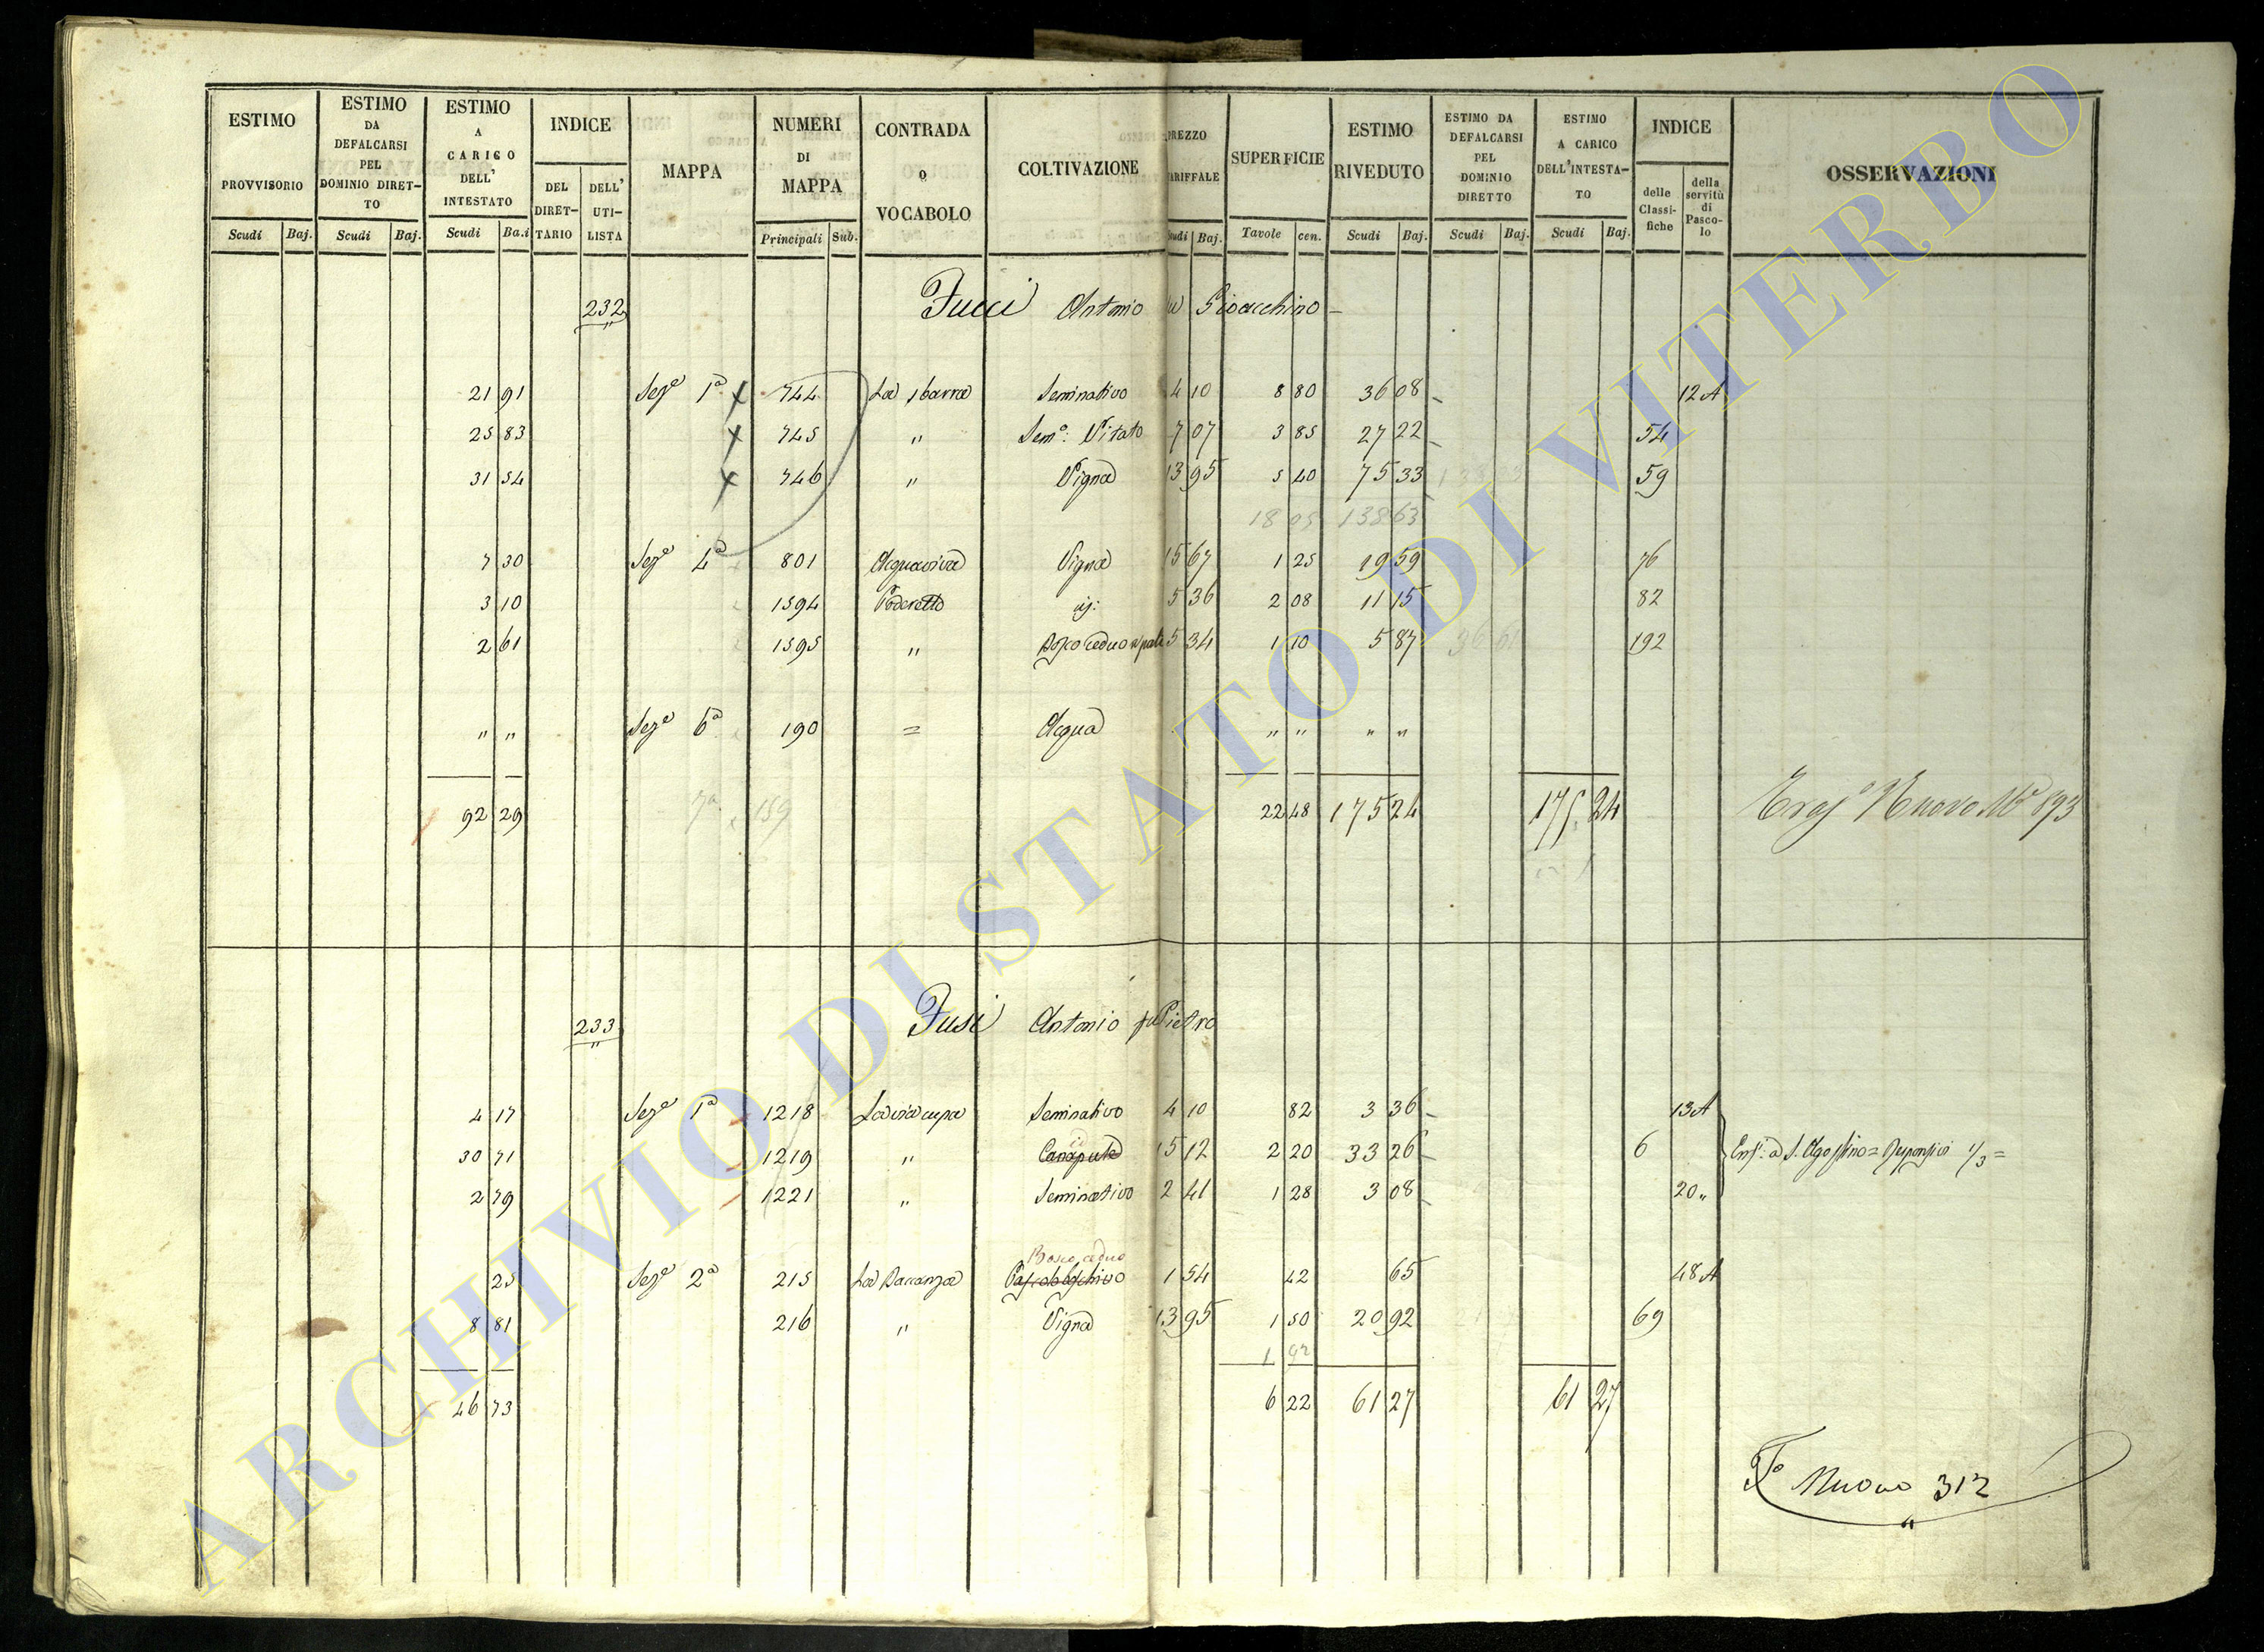 ESTIMO PROVVISORIO Scudi Baj.
ESTIMO DA DEFALCARSI PEL DOMINIO DIRETTO Scudi Baj.
ESTIMO A CARICO DELL' INTESTATO Scudi Ba.i
INDICE DEL DIRETTARIO DELL' UTILISTA
MAPPA
NUMERI DI MAPPA Principali Sub.
CONTRADA O VOCABOLO
COLTIVAZIONE
PREZZO TARIFFALE Scudi Baj.
SUPERFICIE Tavole cen.
ESTIMO RIVEDUTO Scudi Baj.
ESTIMO DA DEFALCARSI PEL DOMINIO DIRETTO Scudi Baj.
ESTIMO A CARICO DELL'INTESTATO Scudi Baj.
INDICE delle Classifiche della servitù di Pascolo
OSSERVAZIONI
232 Fucci Antonio Gioacchino
21 91 Sezᵉ 1ª 744 La sbarra Seminativo 4 10 8 80 36 08 12 A
25 83 745 " Semº: Vitato 7 07 3 85 27 22 54
31 54 746 " Vigna 13 95 5 40 75 33 59
18 05 138 63
7 30 Sezᵉ 4ª 801 Acquaviva Vigna 15 67 1 25 19 59 76
3 10 1594 Poderetto 5 36 2 08 11 15 82
2 61 1595 " Bosco ceduo 5 34 1 10 5 87 36 61 192
" " Sezᵉ 6ª 190 = Acqua " " " "
92 29 7ª 159 22 48 175 24 175 24 Nuovo 893
233 Fusi Antonio fu Pietro
4 17 Sezᵉ 1ª 1218 La via cupa Seminativo 4 10 82 3 36 13 A
30 71 1219 " Canapule 15 12 2 20 33 26 6 Enfi: a S. Agostino = Risponsivo 1/3 =
2 79 1221 " Seminativo 2 41 1 28 3 08 20 "
Bosco ceduo
25 Sezᵉ 2ª 215 La Baccanza Pascolo 1 54 42 65 48 A
8 81 216 " Vigna 13 95 1 50 20 92 69
1 92
46 73 6 22 61 27 61 27
Fº Nuovo 312
ARCHIVIO DI STATO DI VITERBO